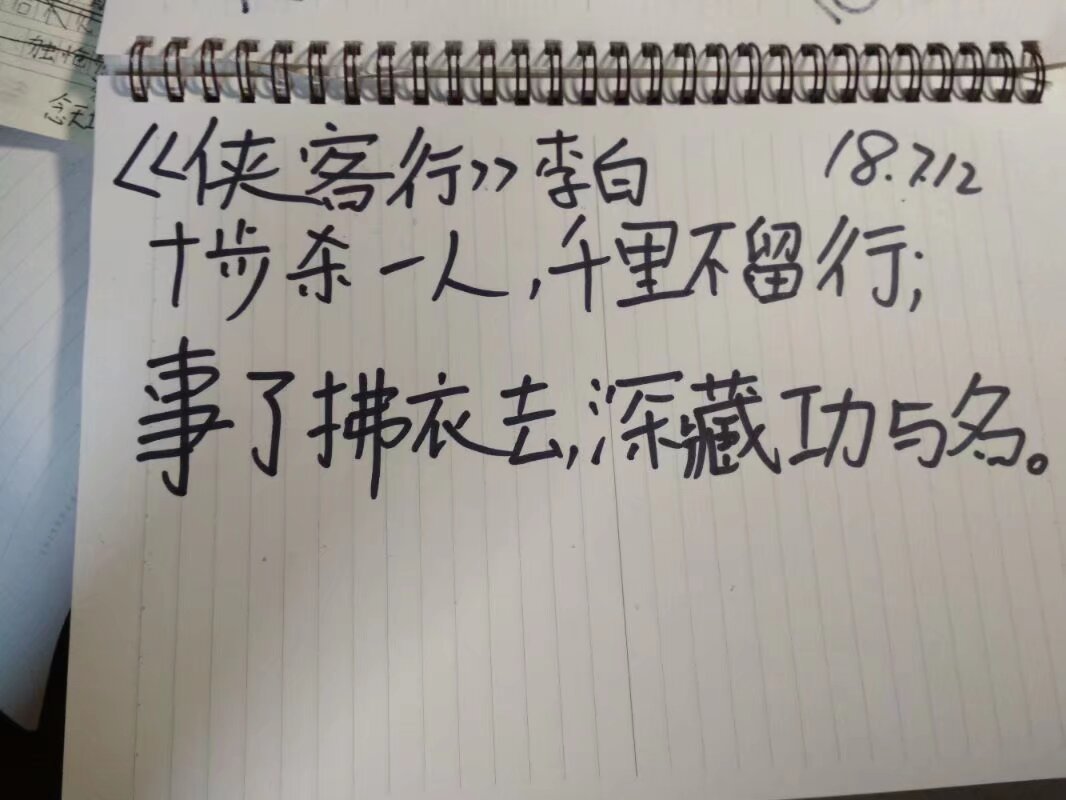 《侠客行》李白 18.7.12
十步杀一人,千里不留行;
事了拂衣去,深藏功与名。